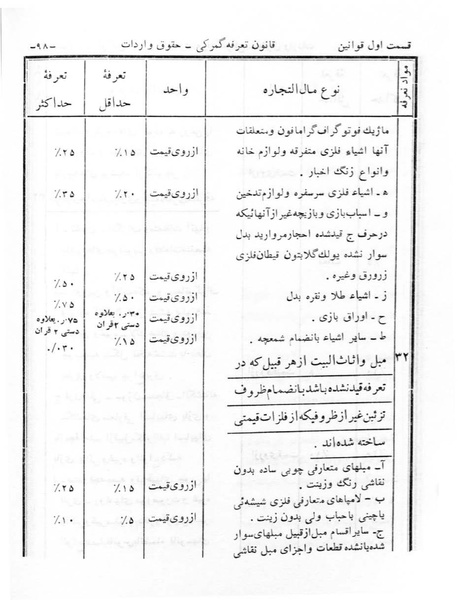 قسمت اول قوانین
قانون تعرفه گمرکی - حقوق واردات
-۹۸-
مواد تعرفه
نوع مال‌التجاره
واحد
تعرفهٔ حداقل
تعرفهٔ حداکثر
ماژیک فوتوگراف گرامافون و متعلقات
آنها اشیاء فلزی متفرقه و لوازم خانه ازروی قیمت ٪۱۵ ٪۲۵
وانواع زنگ اخبار .
ه‍ ـ اشیاء فلزی سرسفره ولوازم تدخین ازروی قیمت ٪۲۰ ٪۳۵
و ـ اسباب بازی و بازیچه غیر از آنهائیکه
درحرف ج قید شده احجار مروارید بدل
سوار نشده پولک گلابتون قیطان فلزی
زرورق وغیره . ازروی قیمت ٪۲۵ ٪۵۰
ز ـ اشیاء طلا و نقره بدل ازروی قیمت ٪۵۰ ٪۷۵
ح ـ اوراق بازی . ازروی قیمت ۳۰.ر. بعلاوه دستی ۲ قران ۷۵.ر. بعلاوه دستی ۲ قران
ط ـ سایر اشیاء بانضمام شمعچه . ازروی قیمت ٪۱۵ ۰/۰۳۰
۳۲ مبل و اثاث البیت از هر قبیل که در
تعرفه قید نشده باشد بانضمام ظروف
تزئین غیر از ظروفیکه از فلزات قیمتی
ساخته شده‌اند .
آ ـ مبلهای متعارفی چوبی ساده بدون
نقاشی رنگ وزینت . ازروی قیمت ٪۱۵ ٪۲۵
ب ـ لامپاهای متعارفی فلزی شیشه‌ئی
یاچینی باحباب ولی بدون زینت . ازروی قیمت ٪۵ ٪۱۰
ج ـ سایر اقسام مبل از قبیل مبلهای سوار
شده یا نشده قطعات و اجزای مبل نقاشی